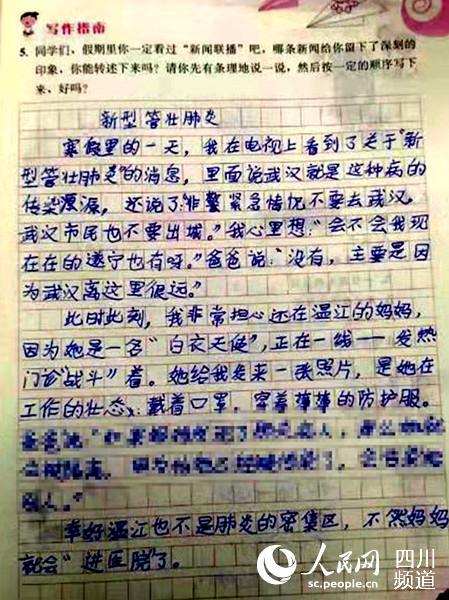 写作指南
5. 同学们，假期里你一定看过“新闻联播”吧，哪条新闻给你留下了深刻的
印象，你能转述下来吗？请你先有条理地说一说，然后按一定的顺序写下
来，好吗？
新型管壮肺炎
寒假里的一天，我在电视上看到了关于“新
型管壮肺炎”的消息，里面说武汉就是这种病的
传染源，还说了：“非紧急情况不要去武汉，
武汉市民也不要出城。”我心里想：“会不会我现
在在的遂宁也有呀。”爸爸说：“没有，主要是因
为武汉离这里很远。”
此时此刻，我非常担心还在温江的妈妈，
因为她是一名“白衣天使”，正在一线——发热
门诊“战斗”着。她给我发来一张照片，是她在
工作的壮态：戴着口罩，穿着棒棒的防护服。
幸好温江也不是肺炎的密集区，不然妈妈
就会“进医院”了。
人民网 四川
频道
sc.people.cn